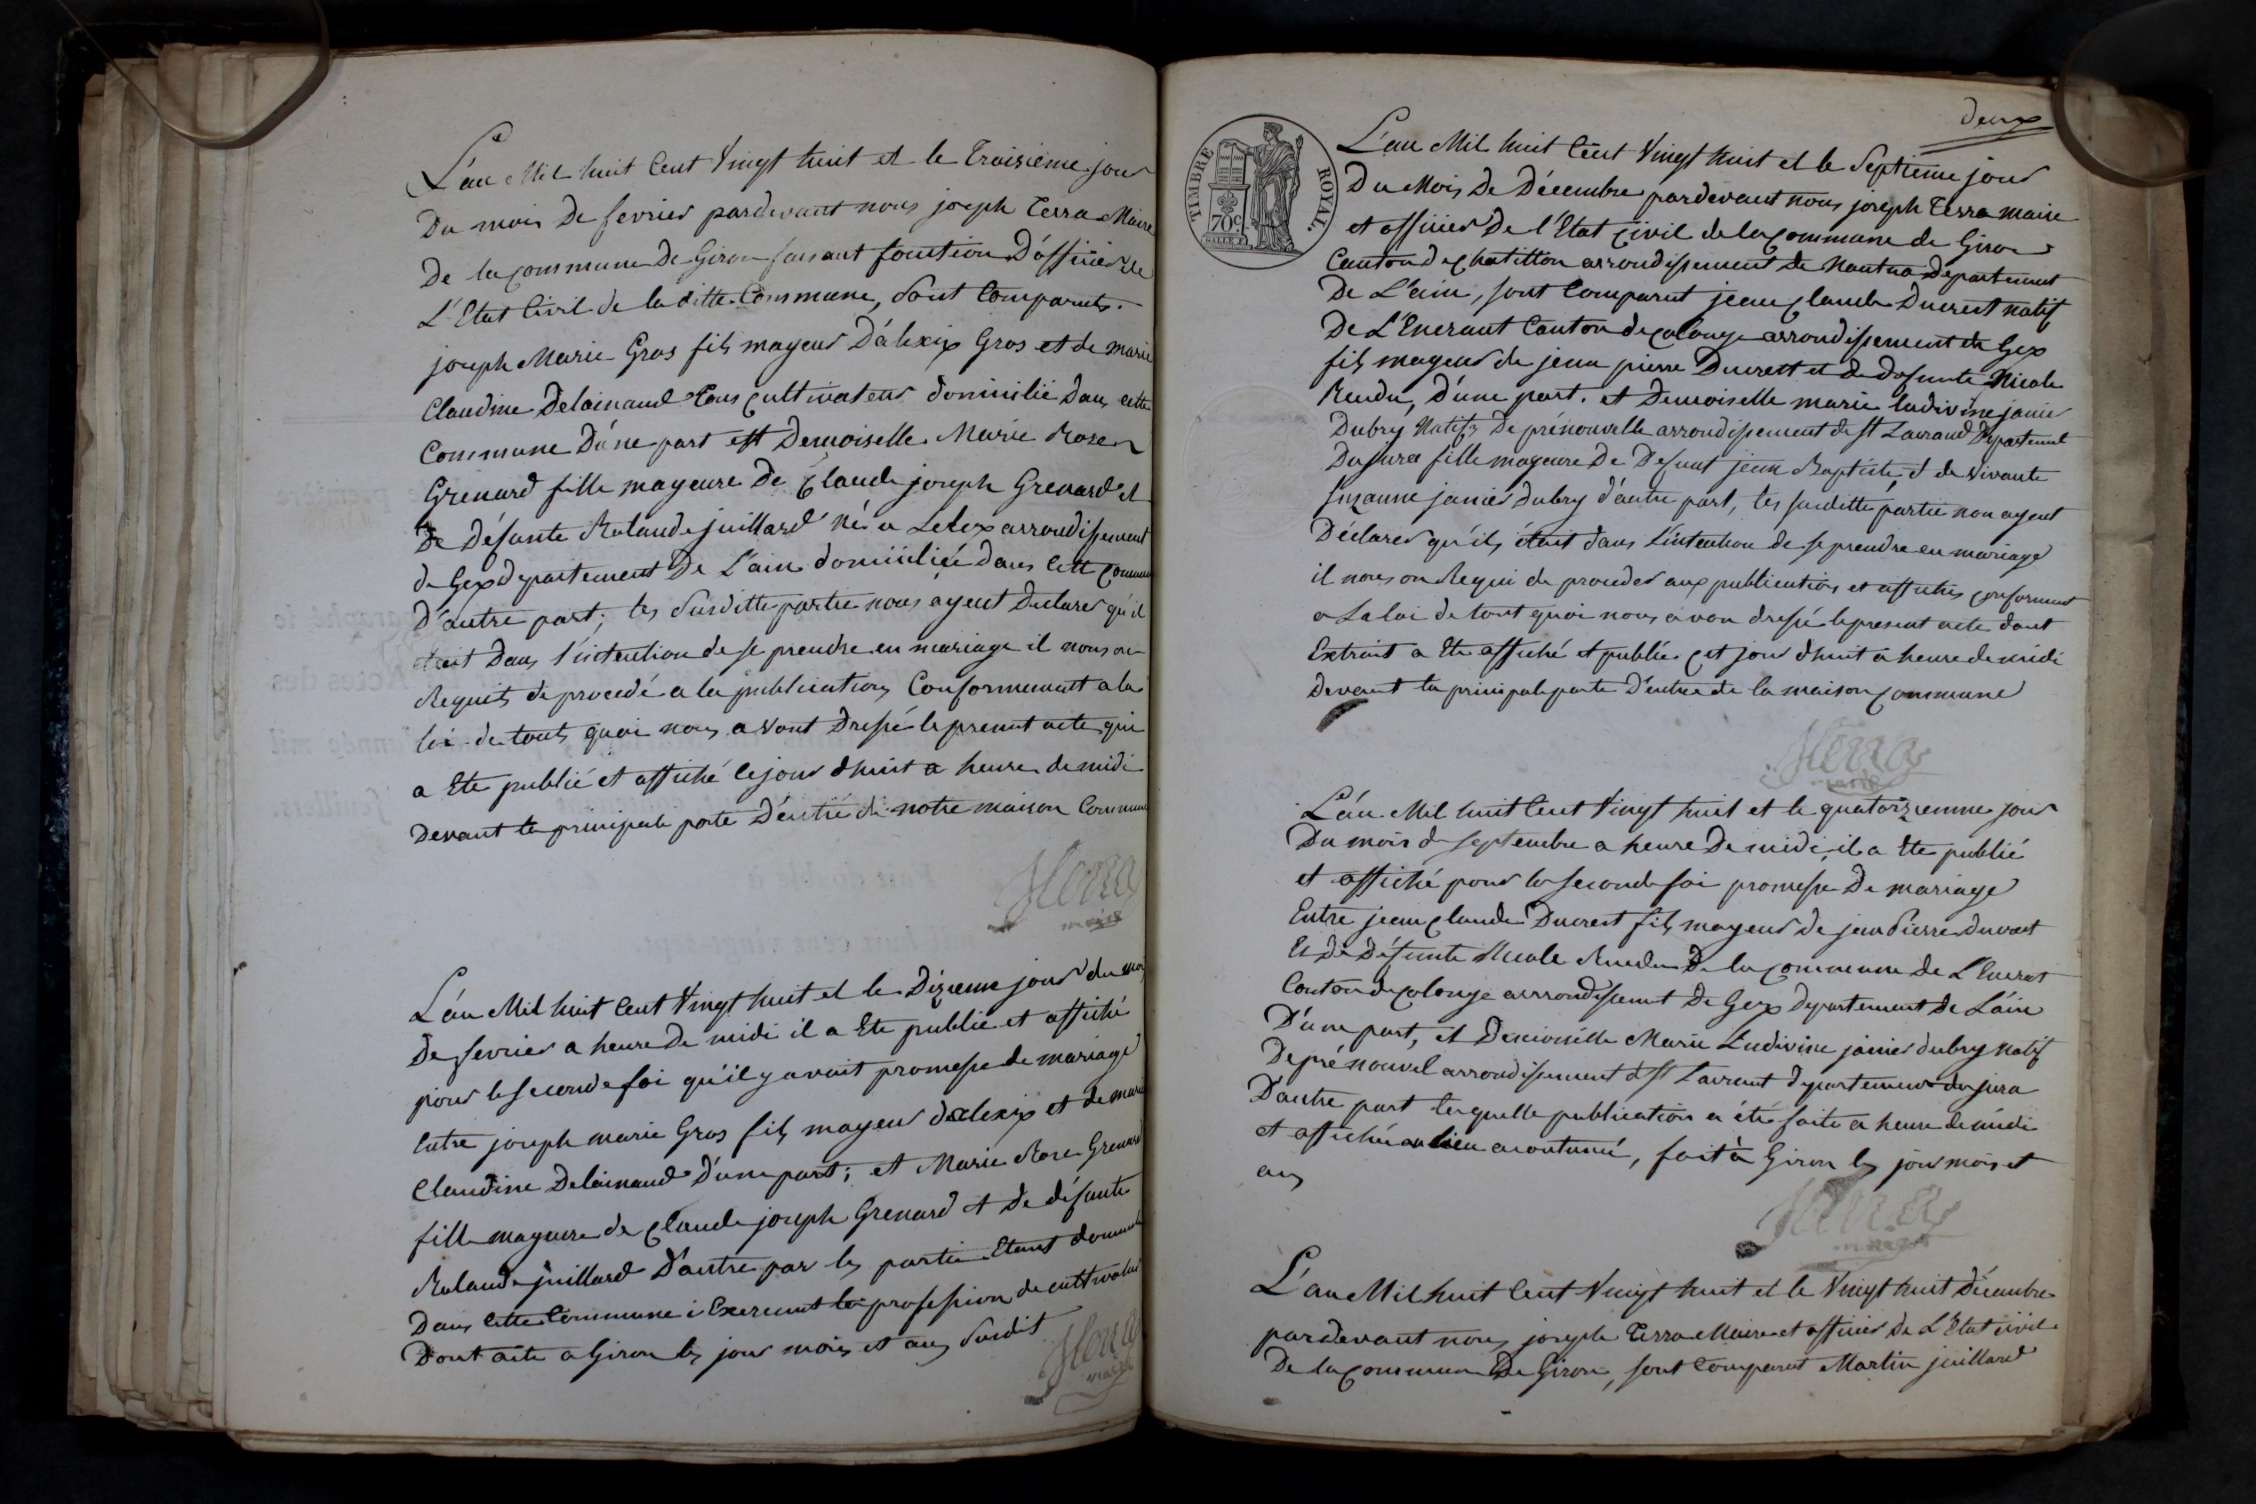 L'an Mil huit Cent Vingt huit et le Troisième jour
Du mois De fevrier pardevant nous joseph Terra Maire
De la commune De Giron faisant fonction D'officier de
L'Etat Civil de la ditte Commune, Sont Comparuts.
joseph Marie Gros fils mayeur D'alexix Gros et de marie
Claudine Delainaud Tous cultivateur domicilié Dans cette
Commune D'une part et Demoiselle Marie Rose
Grenard fille mayeure De Claude joseph Grenard et
De Défunte Rolande juillard né a Lelex arrondissement
de Gex departement De L'ain domiciliée Dans Cette commune
D'autre part; les Surditte partie nous ayent Declarer qu'il
etait Dans l'intention de se prendre en mariage il nous on
Requits de procedé a la publication Conformement a la
loi de touts quoi nous avont Dressé le present acte qui
a Ete publié et affiché Cejour d'huit a heure de midi
Devant la principale porte D'entrié de notre maison Commune
Terra
maire
L'an Mil huit Cent Vingt huit et le Dixieme jour du moi
De fevrier a heure De midi il a Ete publié et affiché
pour la seconde foi qu'il y avait promesse de mariage
Entre joseph marie Gros fils mayeur d'alexix et de marie
Claudine Delainaud D'une part; et Marie Rose Grenard
fille mayeure de Claude joseph Grenard et De défunte
Rolande juillard D'autre par les partie Etant
Dans Cette Commune i Exercant la profession de cultivateur
Dont acte a Giron les jour mois et an Surdit
Terra
maire
deux
TIMBRE ROYAL
70c
L'an Mil huit Cent Vingt huit et le Septieme jour
Du Mois De Décembre pardevant nous joseph Terra maire
et officier De l'Etat Civil de la Commune de Giron
Canton de Chatillon arrondissement de Nantua departement
De L'ain, sont Comparut jean Claude Ducrest natif
De L'Encrant Canton de Colonge arrondissement de Gex
fils mayeur de jean pierre Ducrest et de defunte Nicole
Rendu, D'une part. et Demoiselle marie ludivine janier
Dubry Natif De prénouvelle arrondissement de St Laurand Departement
Dujura fille mayeure De Defunt jean Baptiste et de vivante
suzanne janier Dubry d'autre part, les surditte partie nou ayent
Déclarer qu'ils était dans L'intention de se prendre en mariage
il nous on Requi de proceder aux publication et affiches conforment
a La loi de tout quoi nous avon dressé le present acte dont
Extrait a Ete affiché et publié cet jour d'huit a heure de midi
Devant la principale porte D'entrée de la maison commune
Terra
maire
L'an Mil huit Cent Vingt huit et le quatorzemme jour
Du mois d septembre a heure De midi, il a Ete publié
et affiché pour la seconde foi promesse De mariage
Entre jean Claude Ducrest fils mayeur de jean Pierre ducrest
Et De Défunte Nicole Rendu De la commune De L'Encrat
Conton de Colonge arrondissement De Gex Departement De L'ain
D'une part, et Demoiselle Marie Ludivine janier dubry Natif
De prénouvel arrondissement d St Laurent departement du jura
D'autre part lesquelle publication a été faite a heure de midi
et affiché au lieu acoutumé, fait à Giron les jour mois et
an
Terra
maire
L'an Mil huit Cent Vingt huit et le Vingt huit Décembre
pardevant nous joseph Terra Maire et officier De L'Etat civil
De la commune De Giron, sont Comparut Martin juillard